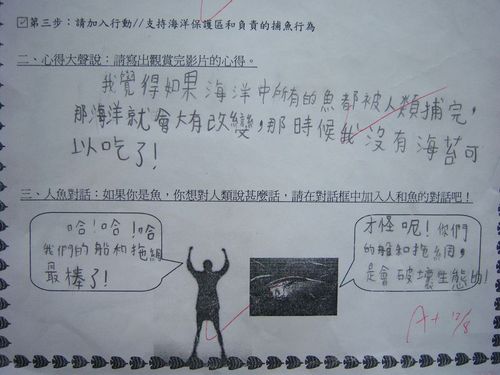 ☑第三步：請加入行動//支持海洋保護區和負責的捕魚行為
二、心得大聲說：請寫出觀賞完影片的心得。
我覺得如果海洋中所有的魚都被人類捕完，
那海洋就會大有改變，那時候我沒有海苔可
以吃了！
三、人魚對話：如果你是魚，你想對人類說甚麼話，請在對話框中加入人和魚的對話吧！
哈！哈！哈
我們的船和拖網
最棒了！
才怪呢！你們
的船和拖網，
是會破壞生態的！
A+ 12/8